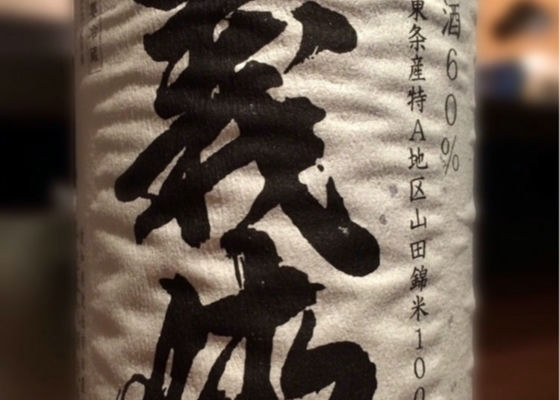 酒60%
東条産特A地区山田錦米100
義侠